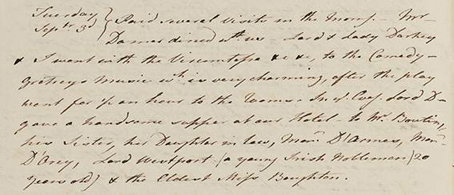 Tuesday
Sept. 3d } Paid several Visits in the Morng. - Mr
Damer dined with us - Lord & Lady Darnley
& I went with the Viscomtesse &c &c, to the Comedy -
Gretrys Music wh. is very charming, after the play
went for ½ an hour to the Rooms - In ye Eveg. Lord D-
gave a handsome supper at our Hotel - to Mrs. Bowtin,
his Sister, her Daughter in law, Made. D'Armes, Made.
D'Arcy, Lord Westport (a young Irish Nobleman) 20
years old) & the Eldest Miss Boughton.